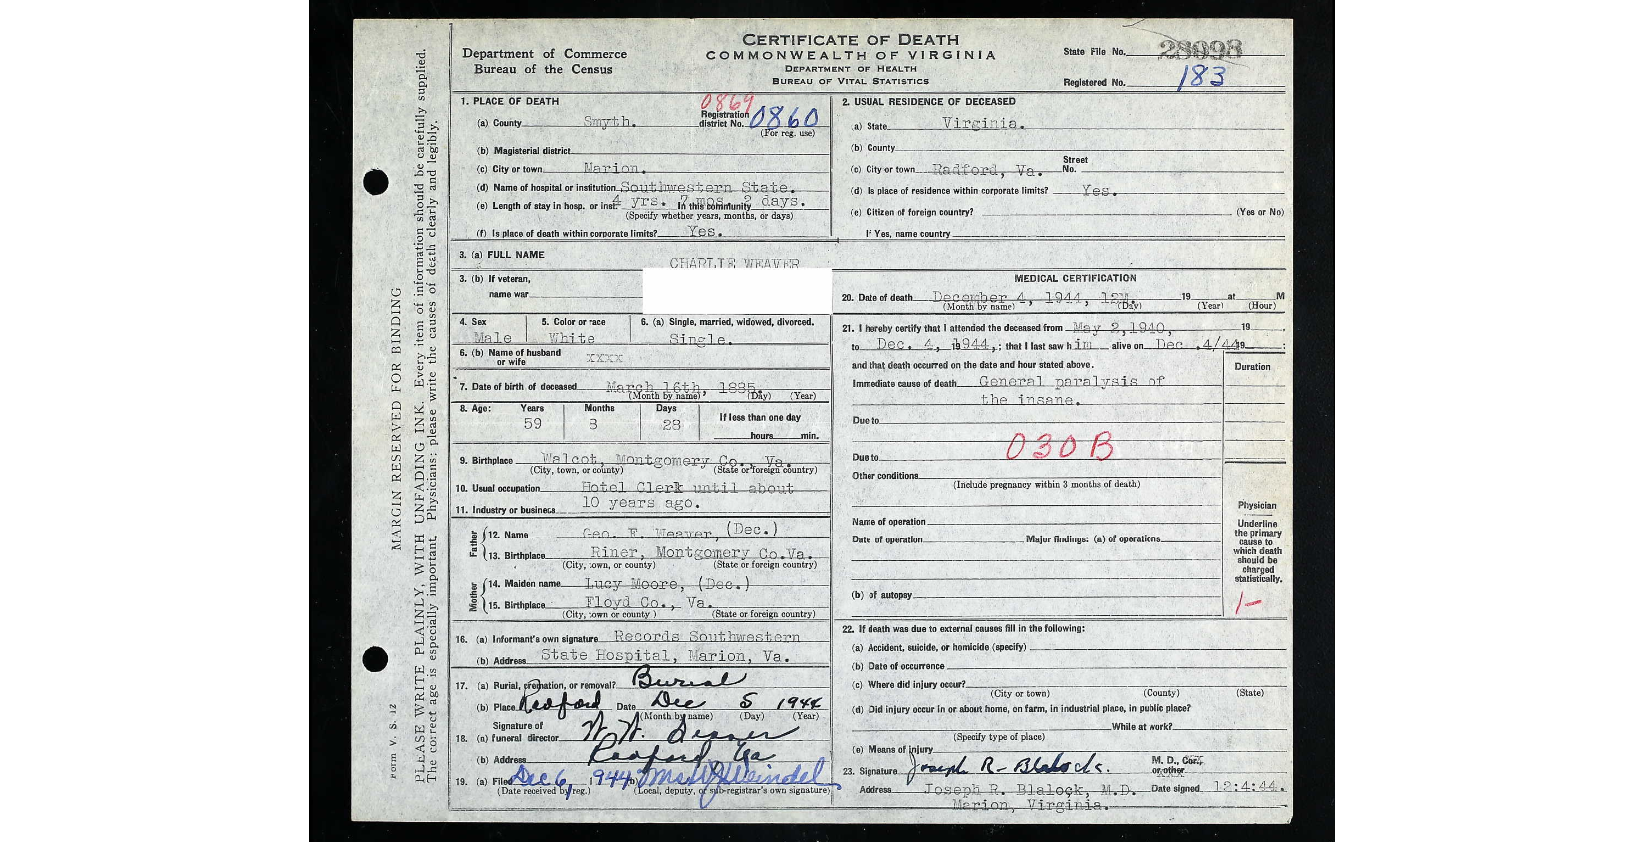 Department of Commerce
Bureau of the Census
CERTIFICATE OF DEATH
COMMONWEALTH OF VIRGINIA
DEPARTMENT OF HEALTH
BUREAU OF VITAL STATISTICS
State File No. 28098
Registered No. 183
MARGIN RESERVED FOR BINDING
PLEASE WRITE PLAINLY, WITH UNFADING INK. Every item of information should be carefully supplied.
The correct age is especially important. Physicians: please write the causes of death clearly and legibly.
Form V. S. 12
1. PLACE OF DEATH
0869
(a) County Smyth. Registration district No. 0860
(For reg. use)
(b) Magisterial district
(c) City or town Marion.
(d) Name of hospital or institution Southwestern State.
(e) Length of stay in hosp. or inst. 4 yrs. 7 mos. 2 days. In this community
(Specify whether years, months, or days)
(f) Is place of death within corporate limits? Yes.
2. USUAL RESIDENCE OF DECEASED
(a) State Virginia.
(b) County
(c) City or town Radford, Va. Street No.
(d) Is place of residence within corporate limits? Yes.
(e) Citizen of foreign country? (Yes or No)
If Yes, name country
3. (a) FULL NAME CHARLIE WEAVER
3. (b) If veteran,
name war
4. Sex 5. Color or race 6. (a) Single, married, widowed, divorced.
Male White Single.
6. (b) Name of husband
or wife xxxx
7. Date of birth of deceased March 16th, 1885.
(Month by name) (Day) (Year)
8. Age: Years Months Days If less than one day
59 8 28 hours min.
9. Birthplace Walcot, Montgomery Co., Va.
(City, town, or county) (State or foreign country)
10. Usual occupation Hotel Clerk until about
11. Industry or business 10 years ago.
Father
12. Name Geo. F. Weaver, (Dec.)
13. Birthplace Riner, Montgomery Co.Va.
(City, town, or county) (State or foreign country)
Mother
14. Maiden name Lucy Moore, (Dec.)
15. Birthplace Floyd Co., Va.
(City, town or county) (State or foreign country)
16. (a) Informant's own signature Records Southwestern
(b) Address State Hospital, Marion, Va.
17. (a) Burial, cremation, or removal? Burial
(b) Place Radford Date Dec 5 1944
(Month by name) (Day) (Year)
Signature of
18. (a) funeral director
(b) Address Radford, Va
19. (a) Filed Dec 6, 1944 (b)
(Date received by reg.) (Local, deputy, or sub-registrar's own signature)
MEDICAL CERTIFICATION
20. Date of death December 4, 1944, 19 at M
(Month by name) (Day) (Year) (Hour)
21. I hereby certify that I attended the deceased from May 2, 1940, 19
to Dec. 4, 1944,; that I last saw him alive on Dec .4/44 19 ;
and that death occurred on the date and hour stated above.
Duration
Immediate cause of death General paralysis of
the insane.
Due to
030B
Due to
Other conditions
(Include pregnancy within 3 months of death)
Name of operation
Date of operation Major findings: (a) of operations
(b) of autopsy
Physician
Underline
the primary
cause to
which death
should be
charged
statistically.
1-
22. If death was due to external causes fill in the following:
(a) Accident, suicide, or homicide (specify)
(b) Date of occurrence
(c) Where did injury occur?
(City or town) (County) (State)
(d) Did injury occur in or about home, on farm, in industrial place, in public place?
While at work?
(Specify type of place)
(e) Means of injury
23. Signature Joseph R. Blalock. M. D., Cor., or other
Address Joseph R. Blalock, M.D. Date signed 12:4:44.
Marion, Virginia.